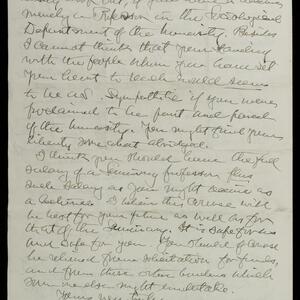 merely a Professor in the Sociological
Department of the University. Besides
I cannot think that your standing
with the people whom you have set
your heart to reach would seem
to be as sympathetic if you were
proclaimed to be part and parcel
of the University. You might find your
liberty somewhat abridged.
I think you should have the full
salary of a Seminary professor plus
such salary as you might receive as
a lecturer. I believe this course will
be best for your future as well as for
that of the Seminary. It is safe for us
and safe for you. You should of course
be relieved from solicitation for funds,
and from those other burdens which
some one else might undertake.
Yours very truly